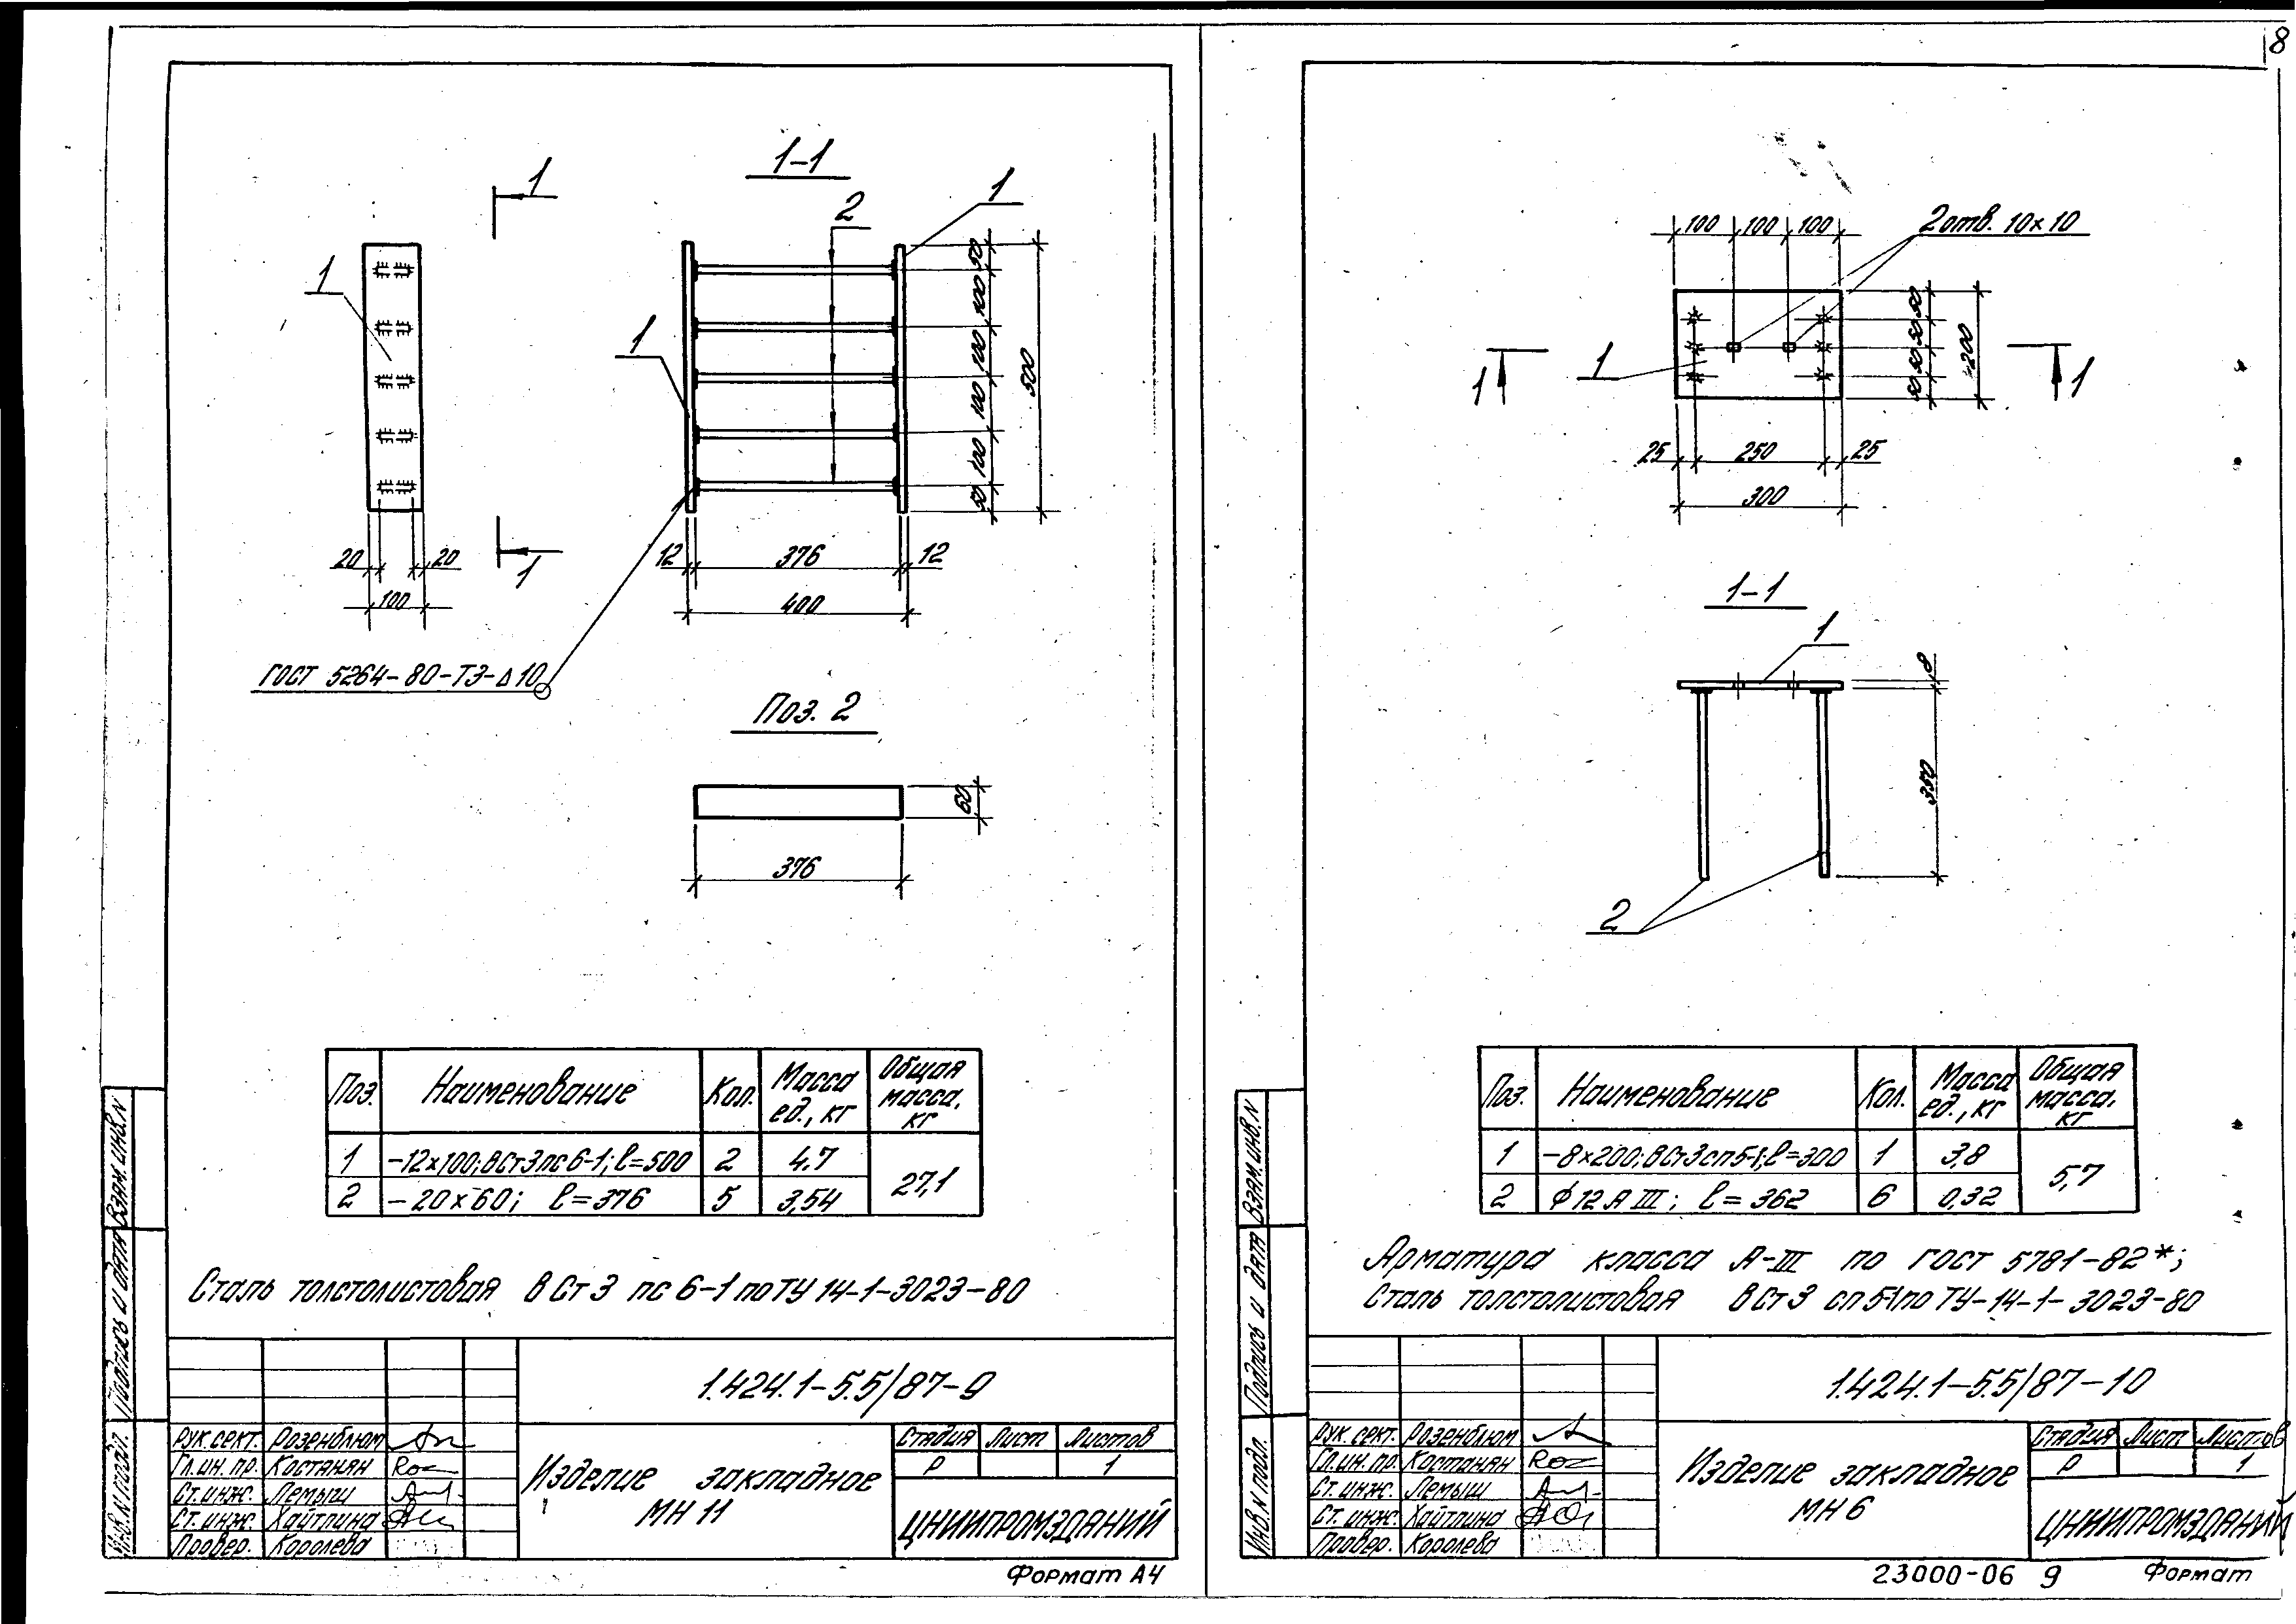 8
1-1
1
1
2
1
1
50
100
100
100
100
50
500
20
20
100
1
12
376
12
400
ГОСТ 5264-80-Т3-Δ10
Поз. 2
60
376
Поз. Наименование Кол. Масса ед., кг Общая масса, кг
1 -12×100; ВСт3пс6-1; ℓ=500 2 4,7 27,1
2 -20×60; ℓ=376 5 3,54
Сталь толстолистовая ВСт3 пс 6-1 по ТУ 14-1-3023-80
1.424.1-5.5/87-9
Рук. сект. Розенблюм
Гл. ин. пр. Костанян
Ст. инж. Лемыш
Ст. инж. Хайтлина
Провер. Королева
Изделие закладное
МН 11
Стадия Лист Листов
Р 1
ЦНИИПРОМЗДАНИЙ
Формат А4
Взам. инв. N
Подпись и дата
Инв. N подл.
100 100 100
2 отв. 10×10
50
50
50
50
200
1
1
1
25 250 25
300
1-1
1
8
350
2
Поз. Наименование Кол. Масса ед., кг Общая масса, кг
1 -8×200; ВСт3сп5-1; ℓ=300 1 3,8 5,7
2 ϕ12 А III; ℓ=362 6 0,32
Арматура класса А-III по ГОСТ 5781-82*;
Сталь толстолистовая ВСт3 сп 5-1 по ТУ-14-1-3023-80
1.424.1-5.5/87-10
Рук. сект. Розенблюм
Гл. ин. пр. Костанян
Ст. инж. Лемыш
Ст. инж. Хайтлина
Провер. Королева
Изделие закладное
МН 6
Стадия Лист Листов
Р 1
ЦНИИПРОМЗДАНИЙ
Взам. инв. N
Подпись и дата
Инв. N подл.
23000-06 9 Формат